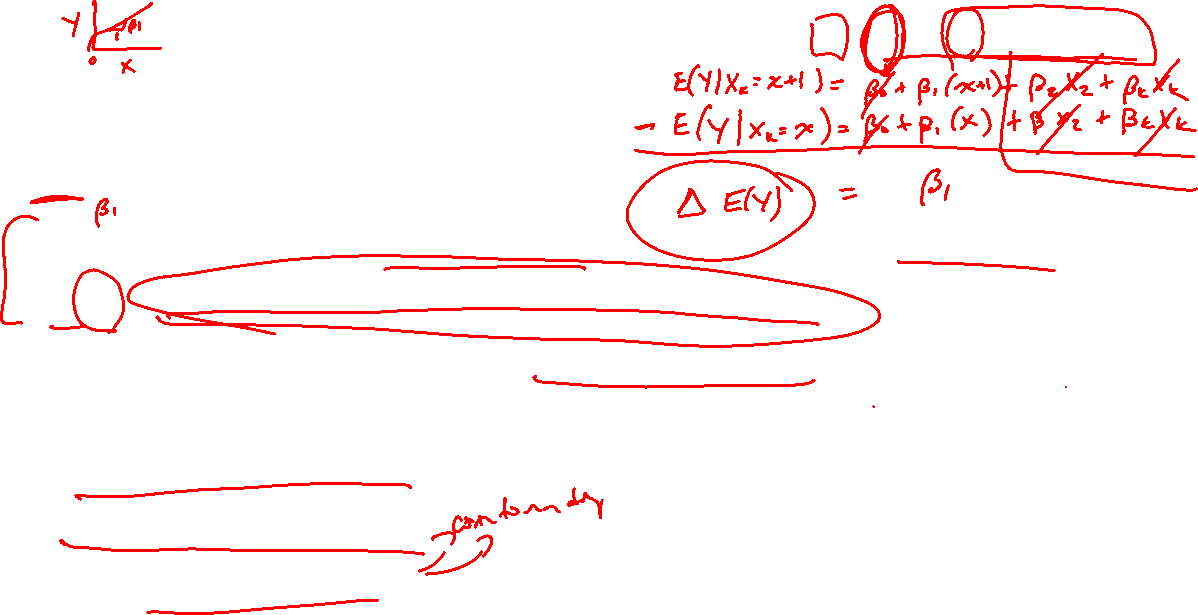 Y β₁
0 X
E(Y|Xₖ=x+1) = β₀ + β₁(x+1) + β₂X₂ + βₖXₖ
- E(Y|Xₖ=x) = β₀ + β₁(x) + βX₂ + βₖXₖ
Δ E(Y) = β₁
β₁